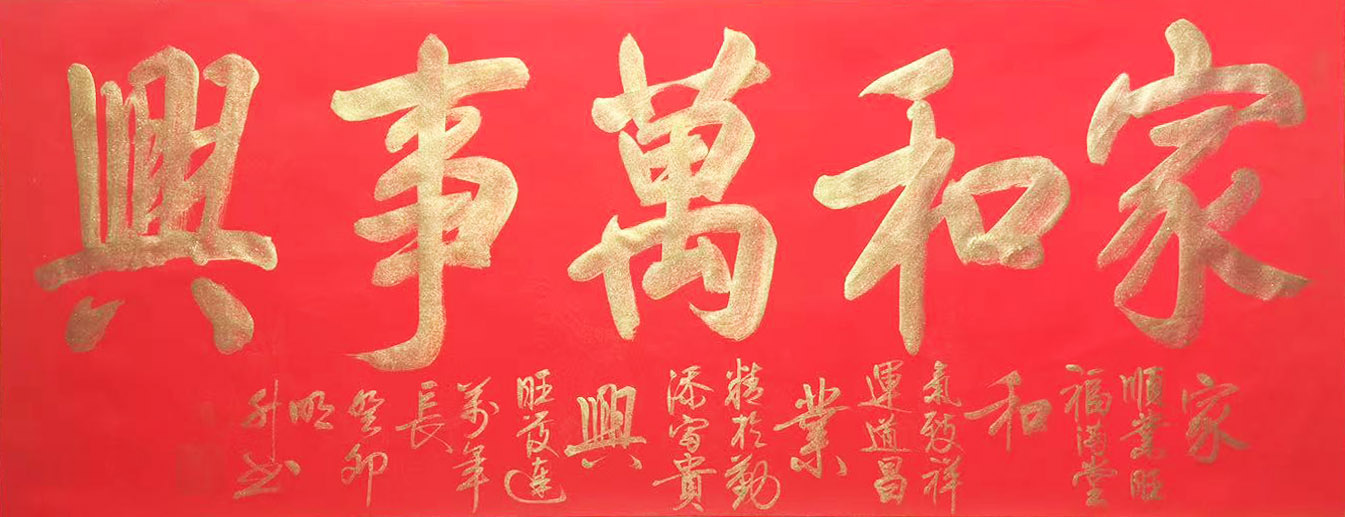 家和萬事興
家
順業旺
福滿堂
和
氣致祥
運道昌
業
精於勤
添富貴
興
旺發達
萬年
長
癸卯
明
升書